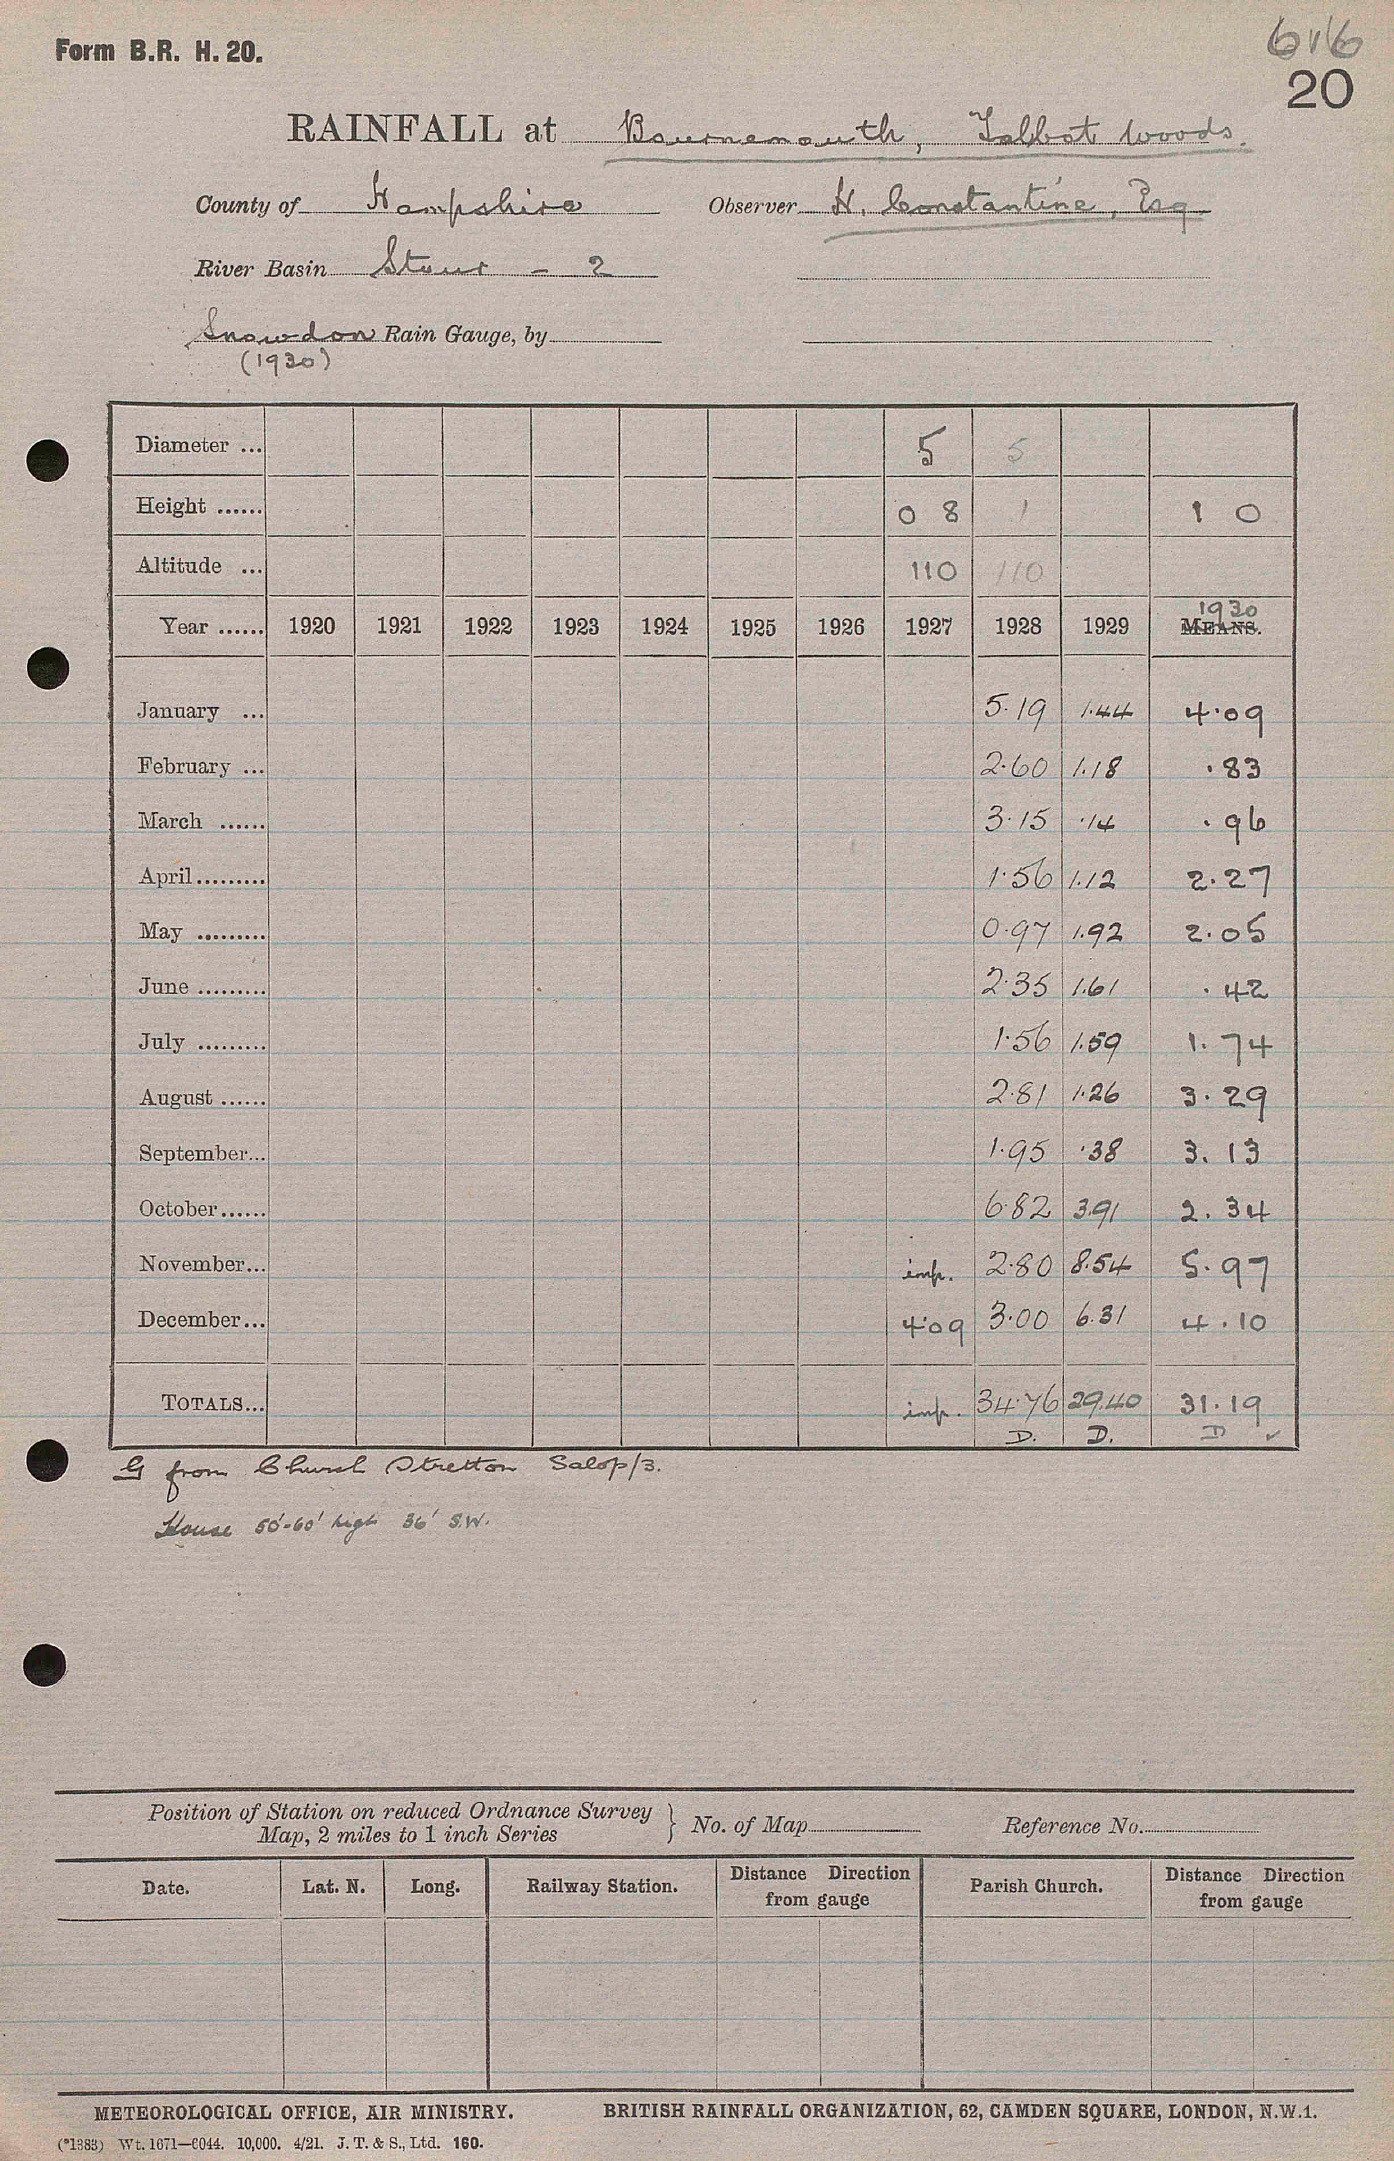 Form B.R. H. 20.
616
20
RAINFALL at Bournemouth, Talbot Woods.
County of Hampshire Observer H. Constantine, Esq.
River Basin Stour - 2
Snowdon Rain Gauge, by
(1930)
Diameter ... 5 5
Height ...... 0 8 1 1 0
Altitude ... 110 110
1930
Year ...... 1920 1921 1922 1923 1924 1925 1926 1927 1928 1929 MEANS.
January ... 5.19 1.44 4.09
February ... 2.60 1.18 .83
March ...... 3.15 .14 .96
April......... 1.56 1.12 2.27
May ......... 0.97 1.92 2.05
June ......... 2.35 1.61 .42
July ......... 1.56 1.59 1.74
August ...... 2.81 1.26 3.29
September... 1.95 .38 3.13
October...... 6.82 3.91 2.34
November... imp. 2.80 8.54 5.97
December... 4.09 3.00 6.31 4.10
TOTALS... imp. 34.76 29.40 31.19
D. D. D ✓
G from Church Stretton Salop/3.
House 50'-60' high 36' S.W.
Position of Station on reduced Ordnance Survey
Map, 2 miles to 1 inch Series } No. of Map Reference No.
Date. Lat. N. Long. Railway Station. Distance Direction from gauge Parish Church. Distance Direction from gauge
METEOROLOGICAL OFFICE, AIR MINISTRY. BRITISH RAINFALL ORGANIZATION, 62, CAMDEN SQUARE, LONDON, N.W.1.
(*1383) Wt. 1671—6044. 10,000. 4/21. J. T. & S., Ltd. 160.